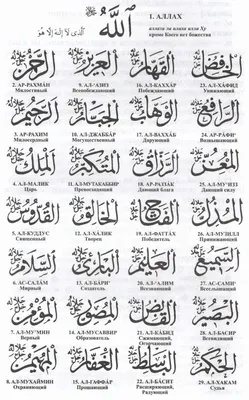 الله
الذي لا إله إلا هو
1. АЛЛАХ
аллази ла илаха илля Ху
кроме Коего нет божества
الرحمن العزيز القهار الخافض
2. АР-РАХМАН 9. АЛ-'АЗИЗ 16. АЛ-КАХХАР 23. АЛ-ХАФИД
Милостивый Всепобеждающий Победитель Унижающий
الرحيم الجبار الوهاب الرافع
3. АР-РАХИМ 10. АЛ-ДЖАББАР 17. АЛ-ВАХХАБ 24. АР-РАФИ'
Милосердный Могущественный Дарующий Возвышающий
الملك المتكبر الرزاق المعز
4. АЛ-МАЛИК 11. АЛ-МУТАКАББИР 18. АР-РАЗЗАК 25. АЛ-МУ'ИЗЗ
Царь Превосходящий Дающий блага Дающий силу
القدوس الخالق الفتاح المذل
5. АЛ-КУДДУС 12. АЛ-ХАЛИК 19. АЛ-ФАТТАХ 26. АЛ-МУЗИЛЛ
Священный Творец Победитель Принижающий
السلام البارئ العليم السميع
6. АС-САЛАМ 13. АЛ-БАРИ' 20. АЛ-АЛИМ 27. АС-САМИ'
Мирный Создатель Всезнающий Всеслышащий
المؤمن المصور القابض البصير
7. АЛ-МУ'МИН 14. АЛ-МУСАВВИР 21. АЛ-КАБИД 28. АЛ-БАСИР
Верный Образователь Сжимающий, Всевидящий
Опечаливающий
المهيمن الغفار الباسط الحكم
8. АЛ-МУХАЙМИН 15. АЛ-ГАФФАР 22. АЛ-БАСИТ 29. АЛ-ХАКАМ
Охраняющий Прощающий Расширяющий, Судья
Радующий